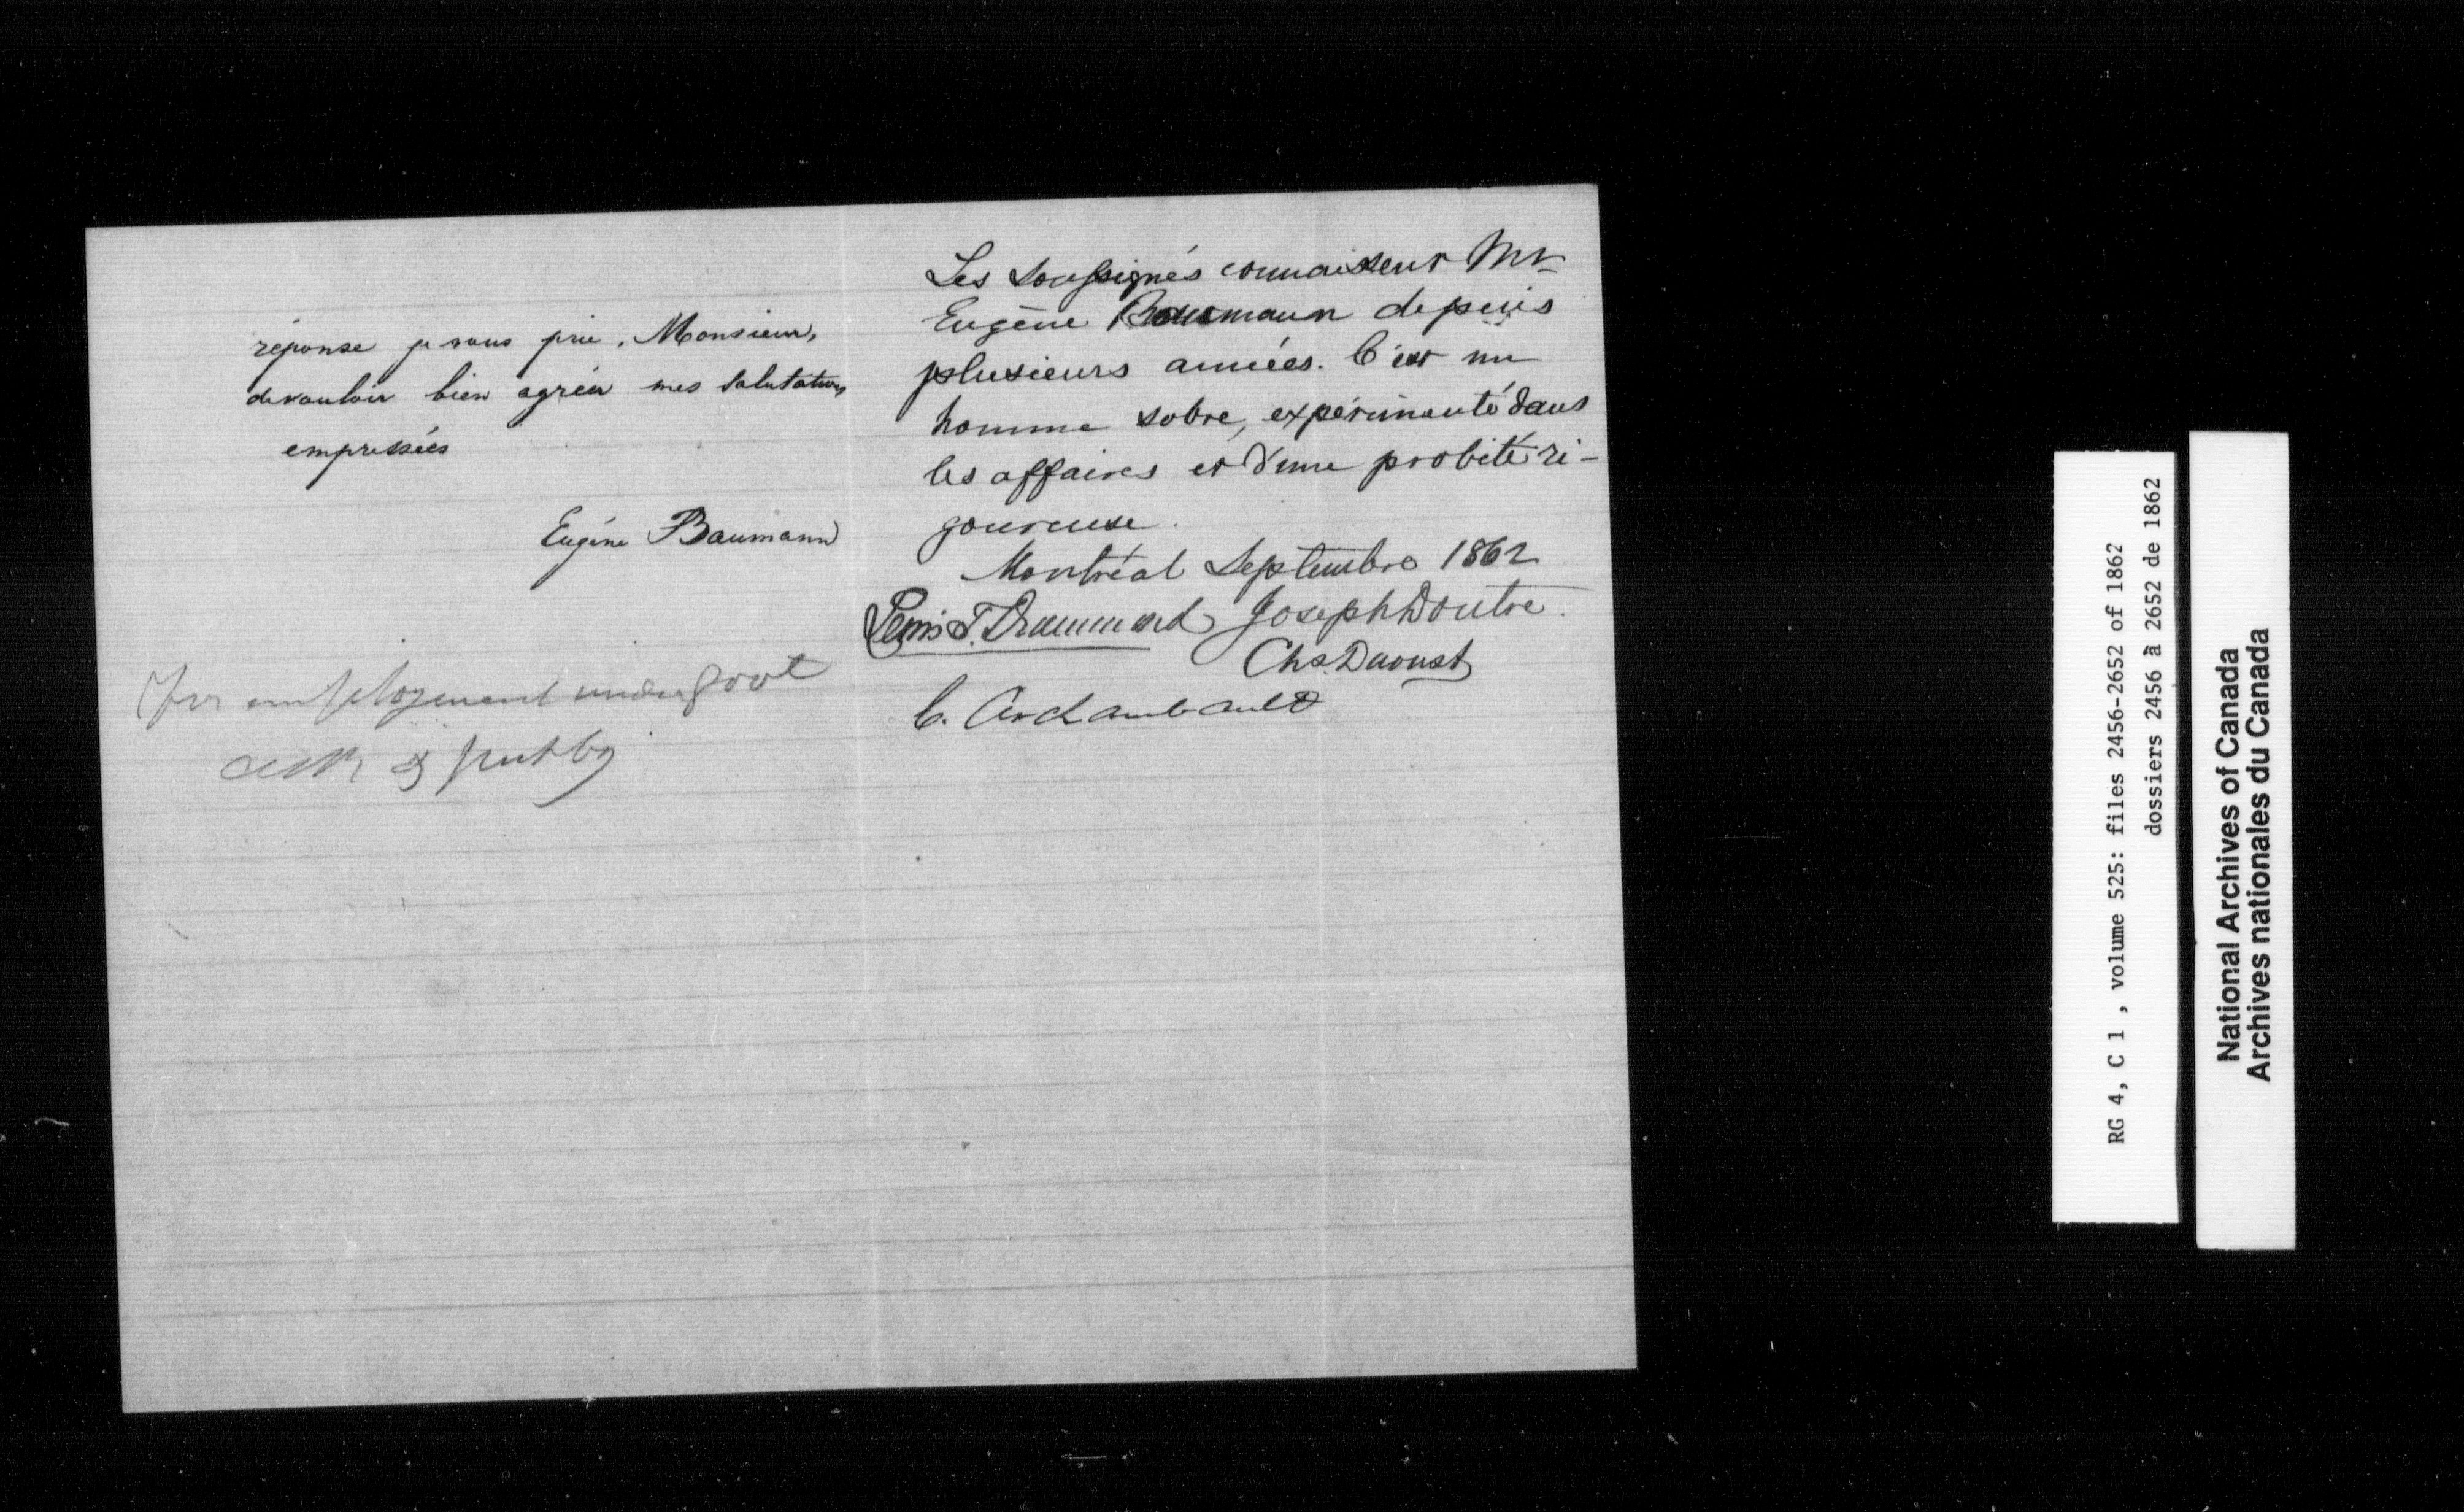 réponse je vous prie, Monsieur,
de vouloir bien agréer mes salutations
empressées
Eugène Baumann
For employment under Govt
ack & put by
Les soussignés connaissent Mr
Eugène Baumann depuis
plusieurs années. C'est un
homme sobre, expérimenté dans
les affaires et d'une probité ri-
goureuse.
Montréal Septembre 1862
Lewis T. Drummond Joseph Doutre.
Chs. Daoust
C. Archambault
RG 4, C 1 , volume 525: files 2456-2652 of 1862
dossiers 2456 à 2652 de 1862
National Archives of Canada
Archives nationales du Canada